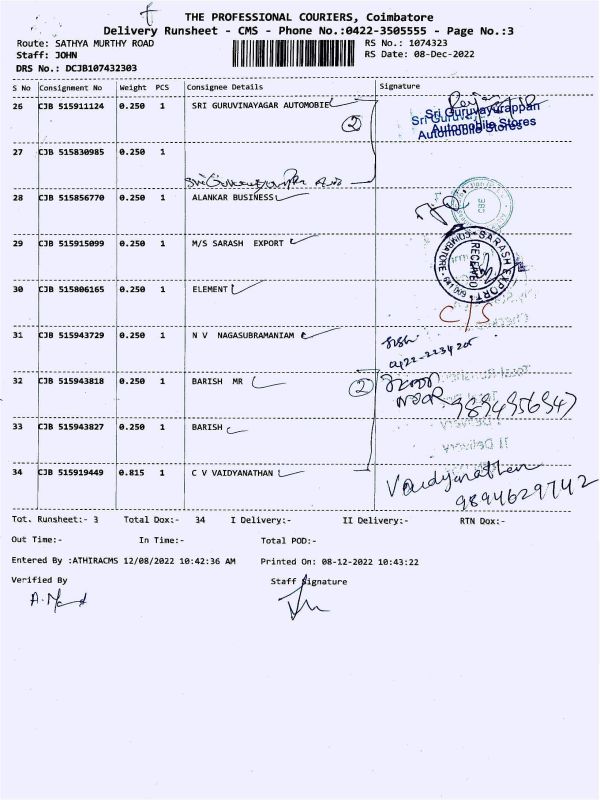 THE PROFESSIONAL COURIERS, Coimbatore
Delivery Runsheet - CMS - Phone No.:0422-3505555 - Page No.:3
Route: SATHYA MURTHY ROAD RS No.: 1074323
Staff: JOHN RS Date: 08-Dec-2022
DRS No.: DCJB107432303
S No Consignment No Weight PCS Consignee Details Signature
26 CJB 515911124 0.250 1 SRI GURUVINAYAGAR AUTOMOBIE
2
Sri Guruvayurappan
Automobile Stores
27 CJB 515830985 0.250 1
28 CJB 515856770 0.250 1 ALANKAR BUSINESS
CBE
29 CJB 515915099 0.250 1 M/S SARASH EXPORT
SARASH EXPORT COIMBATORE - 641 009
RECEIVED
30 CJB 515806165 0.250 1 ELEMENT
C/S
31 CJB 515943729 0.250 1 N V NAGASUBRAMANIAM
0422-2234205
32 CJB 515943818 0.250 1 BARISH MR
2
9894956947
33 CJB 515943827 0.250 1 BARISH
34 CJB 515919449 0.815 1 C V VAIDYANATHAN
Vaidyanathan
9894629742
Tot. Runsheet:- 3 Total Dox:- 34 I Delivery:- II Delivery:- RTN Dox:-
Out Time:- In Time:- Total POD:-
Entered By :ATHIRACMS 12/08/2022 10:42:36 AM Printed On: 08-12-2022 10:43:22
Verified By Staff Signature